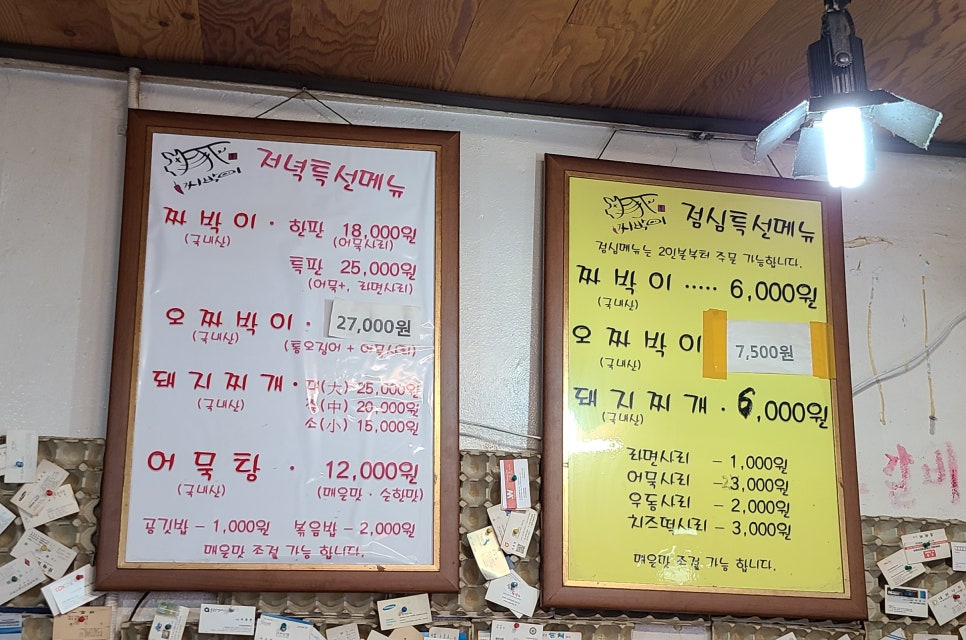 저녁특선메뉴
짜박이 · 한판 18,000원
(국내산) (어묵사리)
특판 25,000원
(어묵+, 라면사리)
오짜박이 · 27,000원
(국내산) (통오징어 + 어묵사리)
돼지찌개 · 대(大) 25,000원
(국내산) 중(中) 20,000원
소(小) 15,000원
어묵탕 · 12,000원
(국내산) (매운맛 · 순한맛)
공깃밥 - 1,000원 볶음밥 - 2,000원
매운맛 조절 가능 합니다.
점심특선메뉴
점심메뉴는 2인분부터 주문 가능합니다.
짜박이 ····· 6,000원
(국내산)
오짜박이 7,500원
(국내산)
돼지찌개 · 6,000원
(국내산)
라면사리 - 1,000원
어묵사리 - 3,000원
우동사리 - 2,000원
치즈떡사리 - 3,000원
매운맛 조절 가능 합니다.